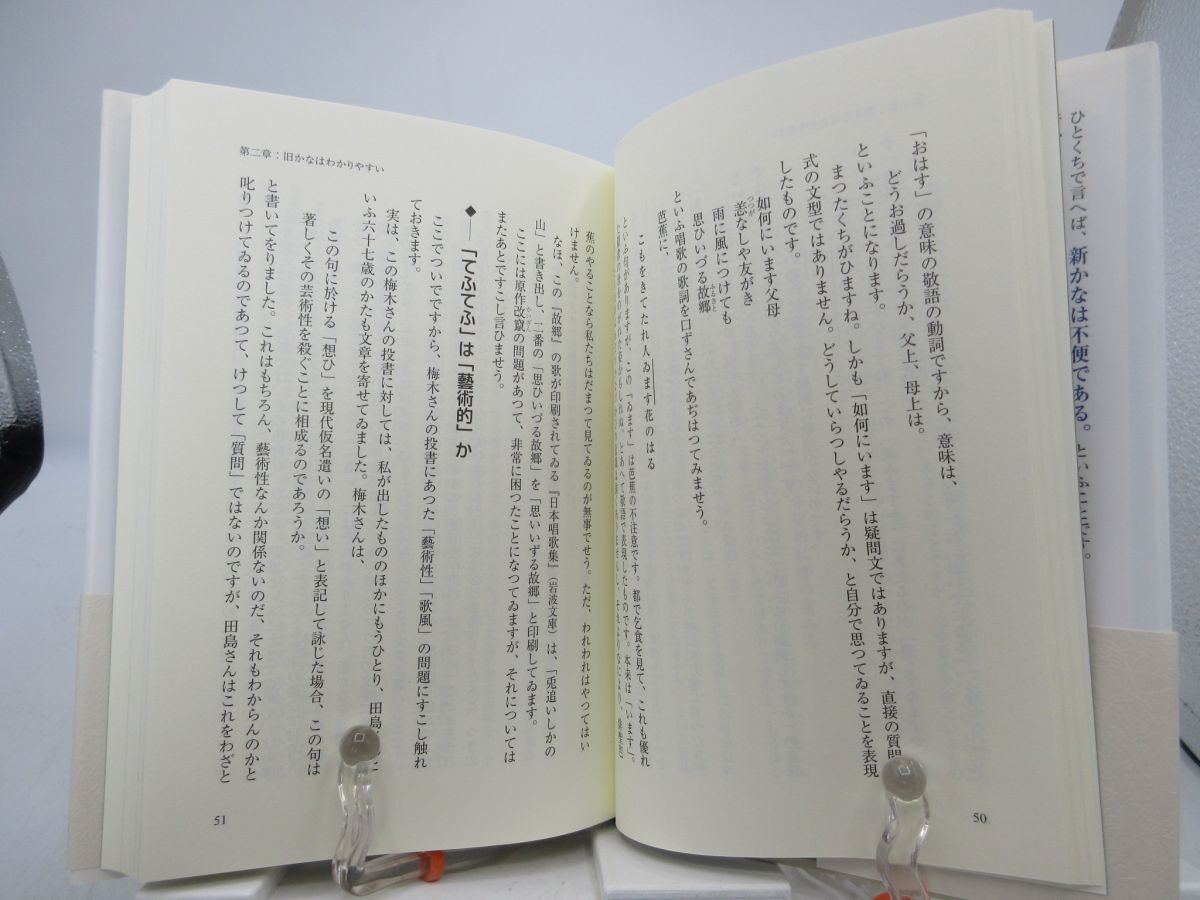 ひとくちで言へば、新かなは不便である。といふことです。
「おはす」の意味の敬語の動詞ですから、意味は、
どうお過しだらうか、父上、母上は。
といふことになります。
まつたくちがひますね。しかも「如何にいます」は疑問文ではありますが、直接の質問
式の文型ではありません。どうしていらつしやるだらうか、と自分で思つてゐることを表現
したものです。
如何にいます父母
恙なしや友がき
つつが
雨に風につけても
思ひいづる故郷
ふるさと
といふ唱歌の歌詞を口ずさんであぢはつてみませう。
芭蕉に、
こもをきてたれ人ゐます花のはる
といふ句がありますが、この「ゐます」は芭蕉の不注意です。都で乞食を見て、これも優れ
とあへて敬語で表現したものです。本来は「います」。
50
蕉のやることなら私たちはだまつて見てゐるのが無事でせう。ただ、われわれはやつてはい
けません。
なほ、この「故郷」の歌が印刷されてゐる『日本唱歌集』（岩波文庫）は、「兎追いしかの
山」と書き出し、二番の「思ひいづる故郷」を「思いいずる故郷」と印刷してゐます。
ここには原作改竄の問題があつて、非常に困つたことになつてゐますが、それについては
かいざん
またあとですこし言ひませう。
◆──「てふてふ」は「藝術的」か
ここでついでですから、梅木さんの投書にあつた「藝術性」「歌風」の問題にすこし触れ
ておきます。
実は、この梅木さんの投書に対しては、私が出したもののほかにもうひとり、田島
いふ六十七歳のかたも文章を寄せてゐました。梅木さんは、
この句に於ける「想ひ」を現代仮名遣いの「想い」と表記して詠じた場合、この句は
著しくその芸術性を殺ぐことに相成るのであろうか。
と書いてをりました。これはもちろん、藝術性なんか関係ないのだ、それもわからんのかと
叱りつけてゐるのであつて、けつして「質問」ではないのですが、田島さんはこれをわざと
第二章：旧かなはわかりやすい
51